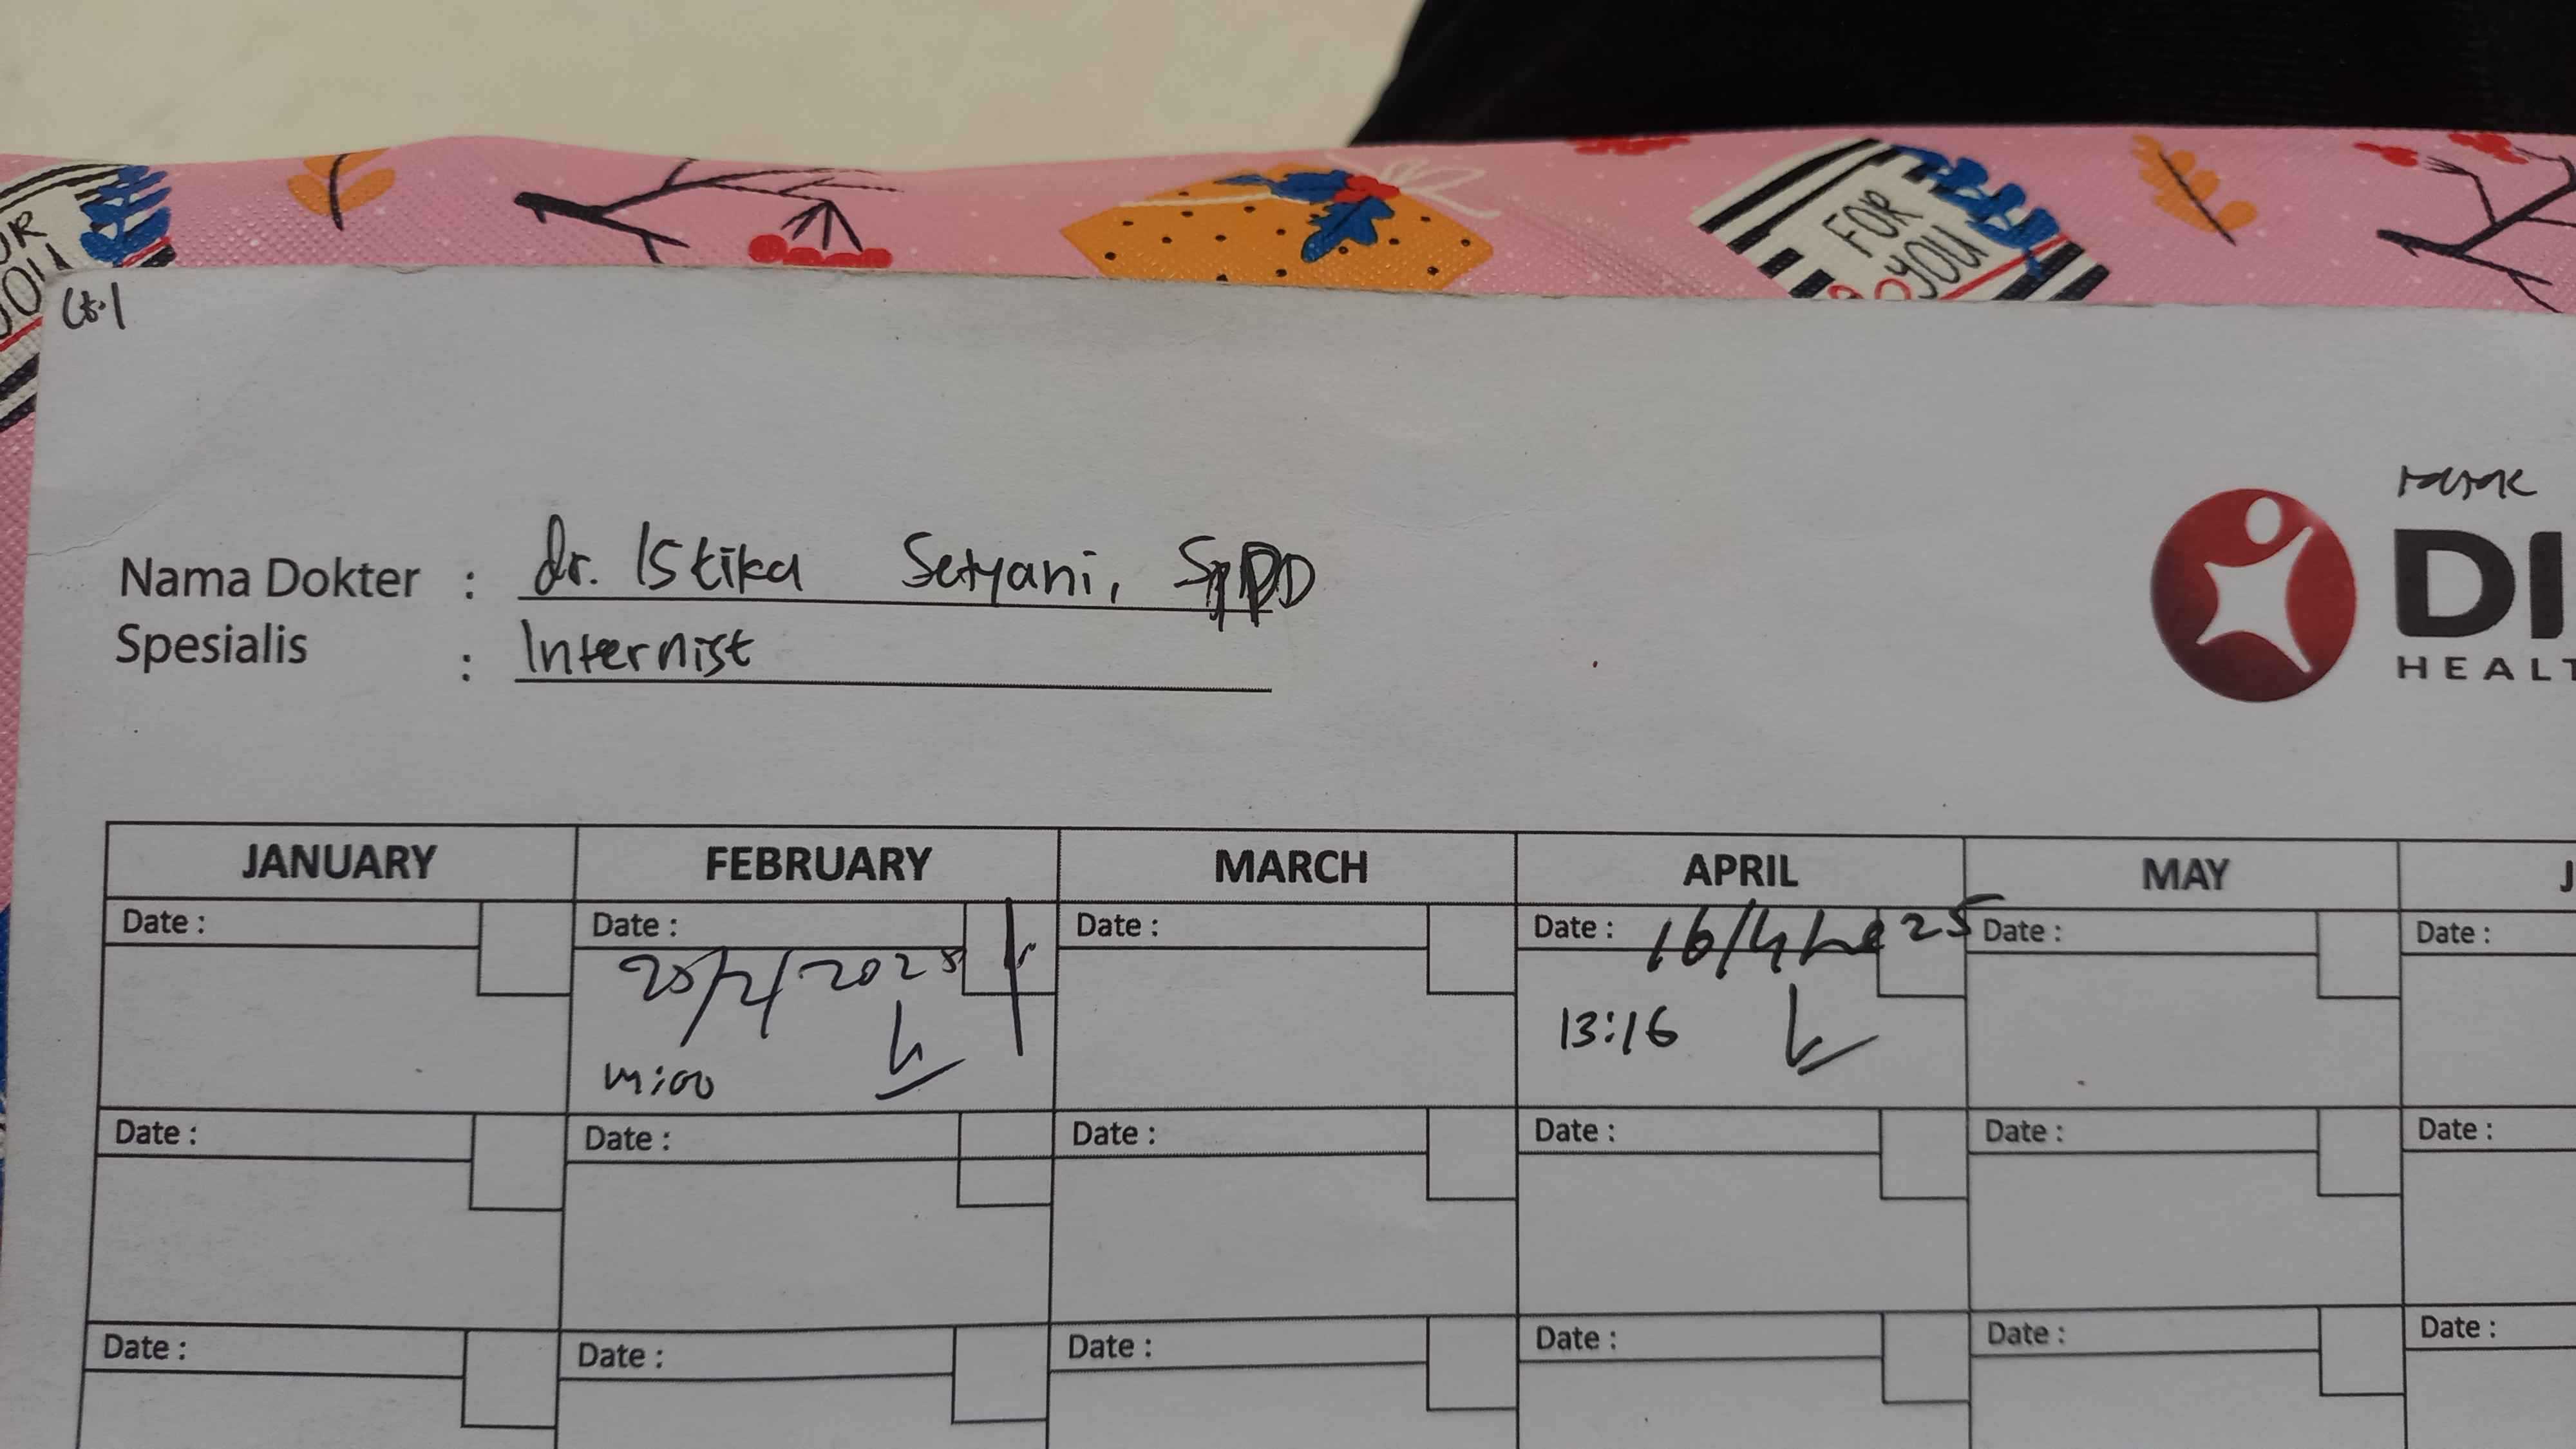 FOR
YOU
UR
YOU
Nama Dokter : dr. Istika Setyani, SpPD
Spesialis : Internist
DI
HEALT
JANUARY FEBRUARY MARCH APRIL MAY J
Date : Date : Date : Date : 16/4 25 Date : Date :
25/2/2025
13:16
Date : Date : Date : Date : Date : Date :
Date : Date : Date : Date : Date : Date :